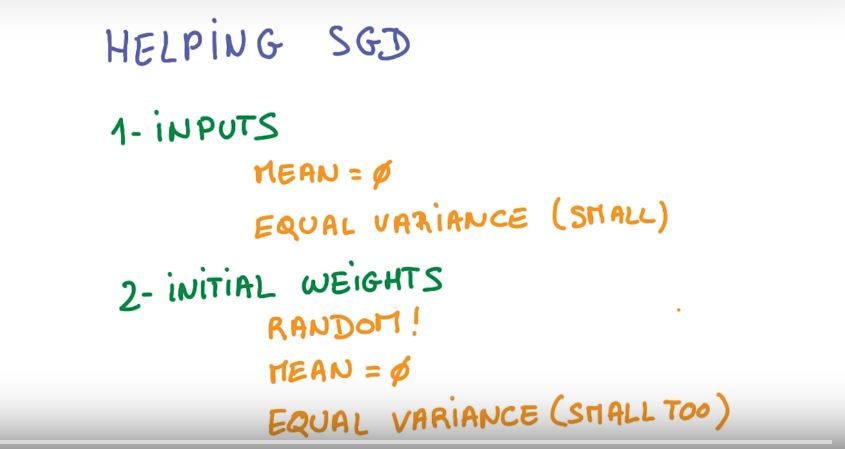 HELPING SGD
1- INPUTS
MEAN = Ø
EQUAL VARIANCE (SMALL)
2- INITIAL WEIGHTS
RANDOM!
MEAN = Ø
EQUAL VARIANCE (SMALL TOO)